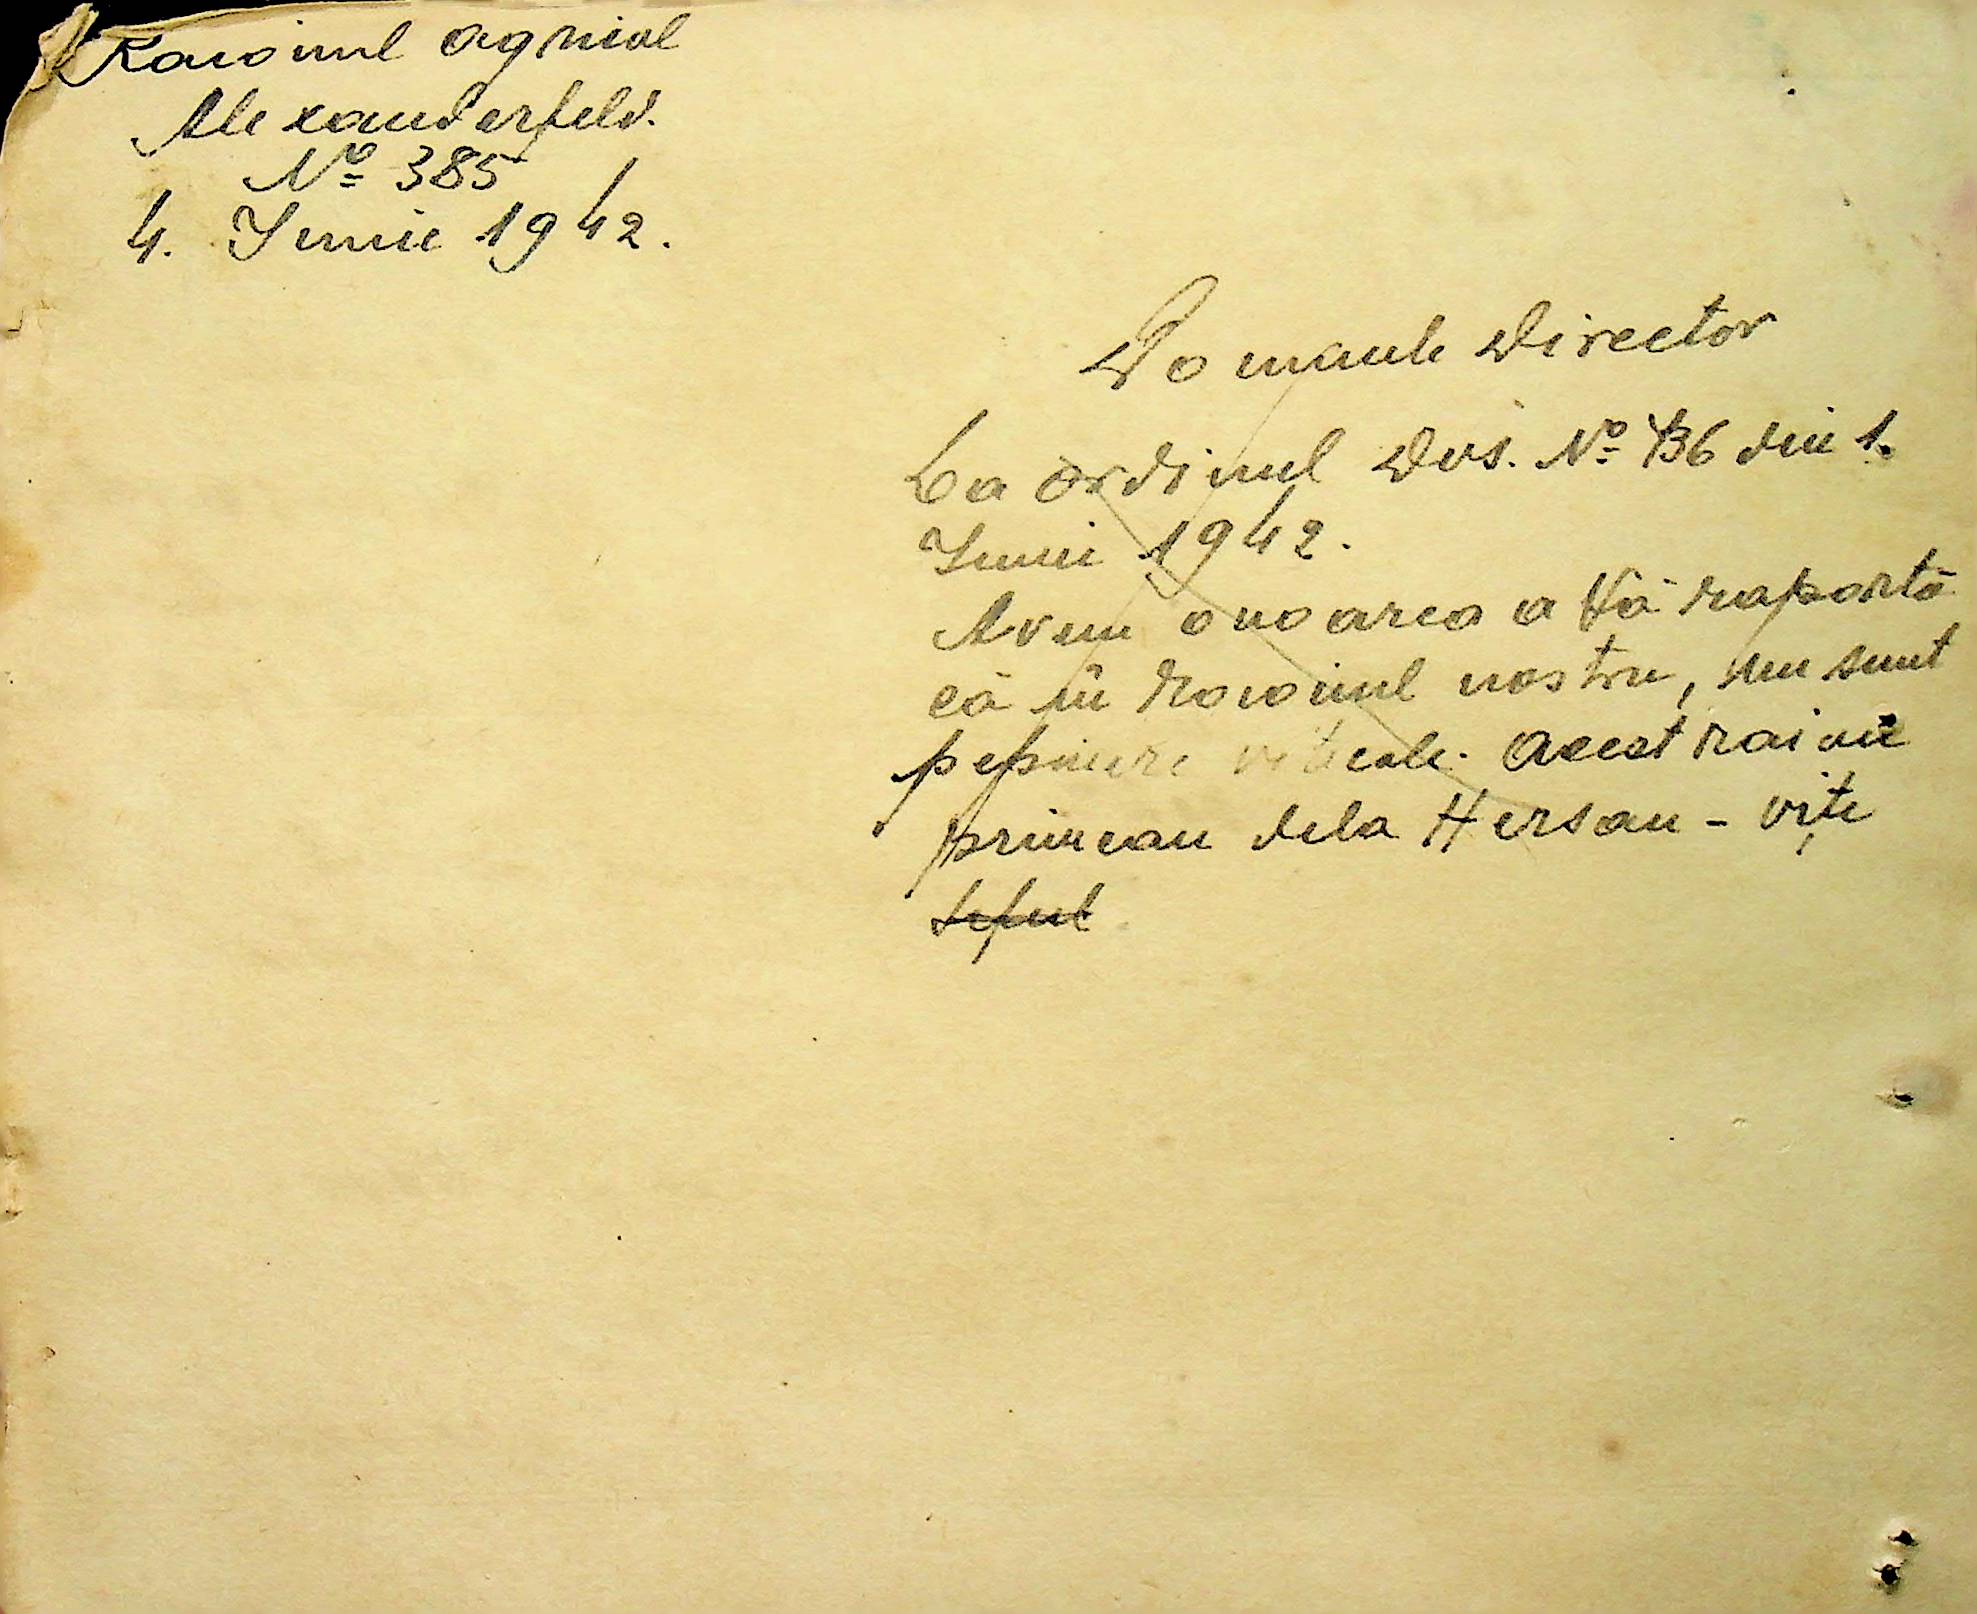 Raionul agricol
Alexanderfeld.
Nº 385
4. Iunie 1942.
Domnule Director
La ordinul Dvs. Nº 136 din 1.
Iunie 1942.
Avem onoarea a Vă raportă
că în Raionul nostru, nu sunt
pepiniere viticole. Acest raion
primeau dela Hersan - vițe
șeful